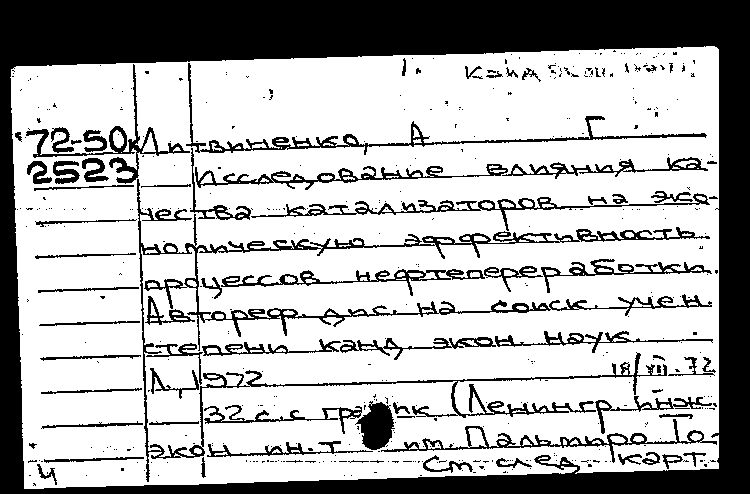 Канд. экон. наук
72-50к Литвиненко, А Г
2523 Исследование влияния ка-
чества катализаторов на эко-
номическую эффективность
процессов нефтепереработки.
Автореф. дис. на соиск. учен.
степени канд. экон. наук.
Л., 1972 18/VII.72
32 с. с график. (Ленингр. инж.
экон ин-т им. Пальмиро То-
4 См. след. карт.